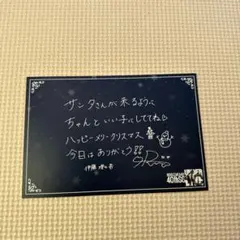 サンタさんが来るように
ちゃんといい子にしててね
ハッピーメリークリスマス
今日はありがとう!!
伊藤